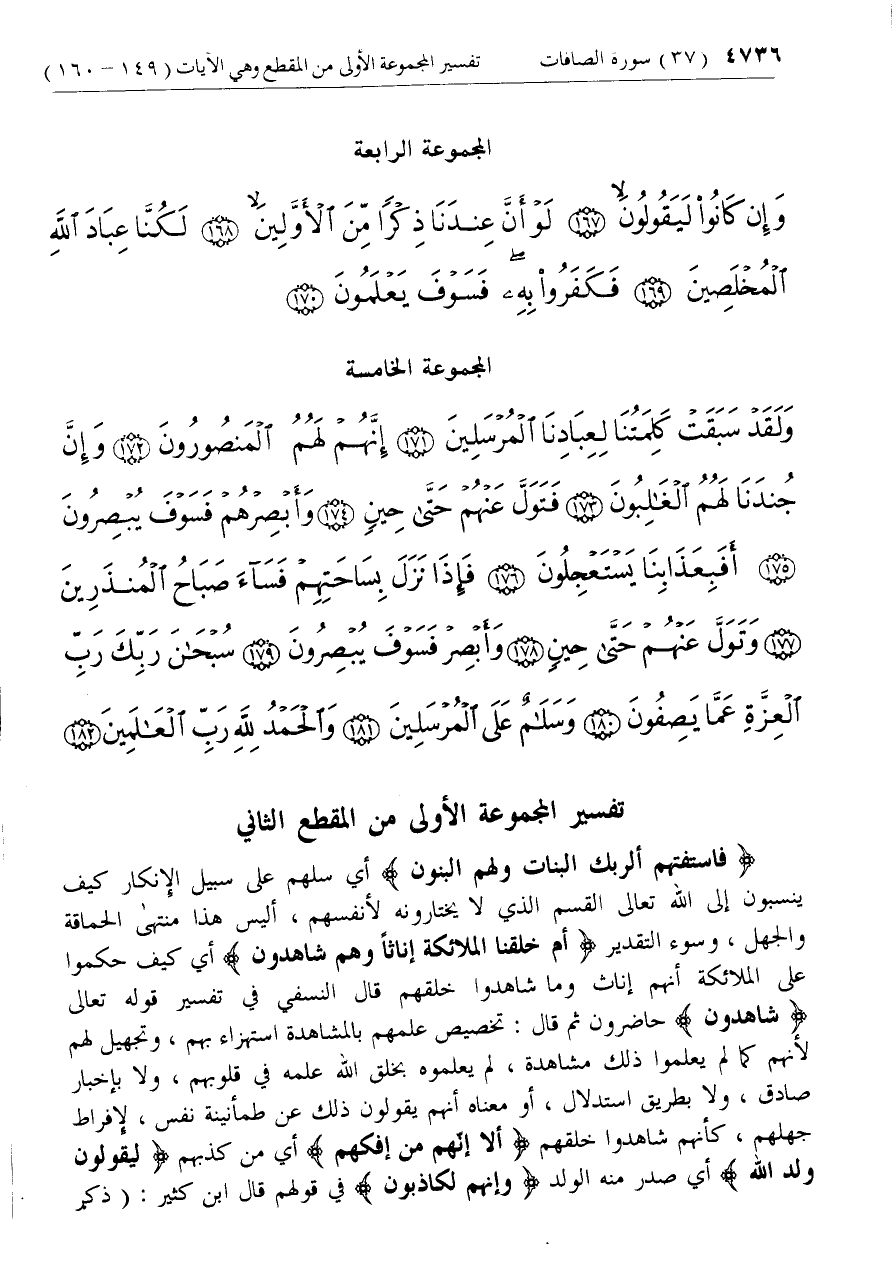 ٤٧٣٦ (٣٧) سورة الصافات تفسير المجموعة الأولى من المقطع وهي الآيات (١٤٩ – ١٦٠)
المجموعة الرابعة
وَإِن كَانُوا۟ لَيَقُولُونَ ۙ ١٦٧ لَوْ أَنَّ عِندَنَا ذِكْرًا مِّنَ ٱلْأَوَّلِينَ ۙ ١٦٨ لَكُنَّا عِبَادَ ٱللَّهِ
ٱلْمُخْلَصِينَ ١٦٩ فَكَفَرُوا۟ بِهِۦ ۖ فَسَوْفَ يَعْلَمُونَ ١٧٠
المجموعة الخامسة
وَلَقَدْ سَبَقَتْ كَلِمَتُنَا لِعِبَادِنَا ٱلْمُرْسَلِينَ ١٧١ إِنَّهُمْ لَهُمُ ٱلْمَنصُورُونَ ١٧٢ وَإِنَّ
جُندَنَا لَهُمُ ٱلْغَـٰلِبُونَ ١٧٣ فَتَوَلَّ عَنْهُمْ حَتَّىٰ حِينٍ ١٧٤ وَأَبْصِرْهُمْ فَسَوْفَ يُبْصِرُونَ
١٧٥ أَفَبِعَذَابِنَا يَسْتَعْجِلُونَ ١٧٦ فَإِذَا نَزَلَ بِسَاحَتِهِمْ فَسَآءَ صَبَاحُ ٱلْمُنذَرِينَ
١٧٧ وَتَوَلَّ عَنْهُمْ حَتَّىٰ حِينٍ ١٧٨ وَأَبْصِرْ فَسَوْفَ يُبْصِرُونَ ١٧٩ سُبْحَـٰنَ رَبِّكَ رَبِّ
ٱلْعِزَّةِ عَمَّا يَصِفُونَ ١٨٠ وَسَلَـٰمٌ عَلَى ٱلْمُرْسَلِينَ ١٨١ وَٱلْحَمْدُ لِلَّهِ رَبِّ ٱلْعَـٰلَمِينَ ١٨٢
تفسير المجموعة الأولى من المقطع الثاني
﴿ فاستفتهم ألربك البنات ولهم البنون ﴾ أي سلهم على سبيل الإنكار كيف
ينسبون إلى الله تعالى القسم الذي لا يختارونه لأنفسهم ، أليس هذا منتهىٰ الحماقة
والجهل ، وسوء التقدير ﴿ أم خلقنا الملائكة إناثاً وهم شاهدون ﴾ أي كيف حكموا
على الملائكة أنهم إناث وما شاهدوا خلقهم قال النسفي في تفسير قوله تعالى
﴿ شاهدون ﴾ حاضرون ثم قال : تخصيص علمهم بالمشاهدة استهزاء بهم ، وتجهيل لهم
لأنهم كما لم يعلموا ذلك مشاهدة ، لم يعلموه بخلق الله علمه في قلوبهم ، ولا بإخبار
صادق ، ولا بطريق استدلال ، أو معناه أنهم يقولون ذلك عن طمأنينة نفس ، لإفراط
جهلهم ، كأنهم شاهدوا خلقهم ﴿ ألا إنّهم من إفكهم ﴾ أي من كذبهم ﴿ ليقولون
ولد الله ﴾ أي صدر منه الولد ﴿ وإنهم لكاذبون ﴾ في قولهم قال ابن كثير : ( ذكر